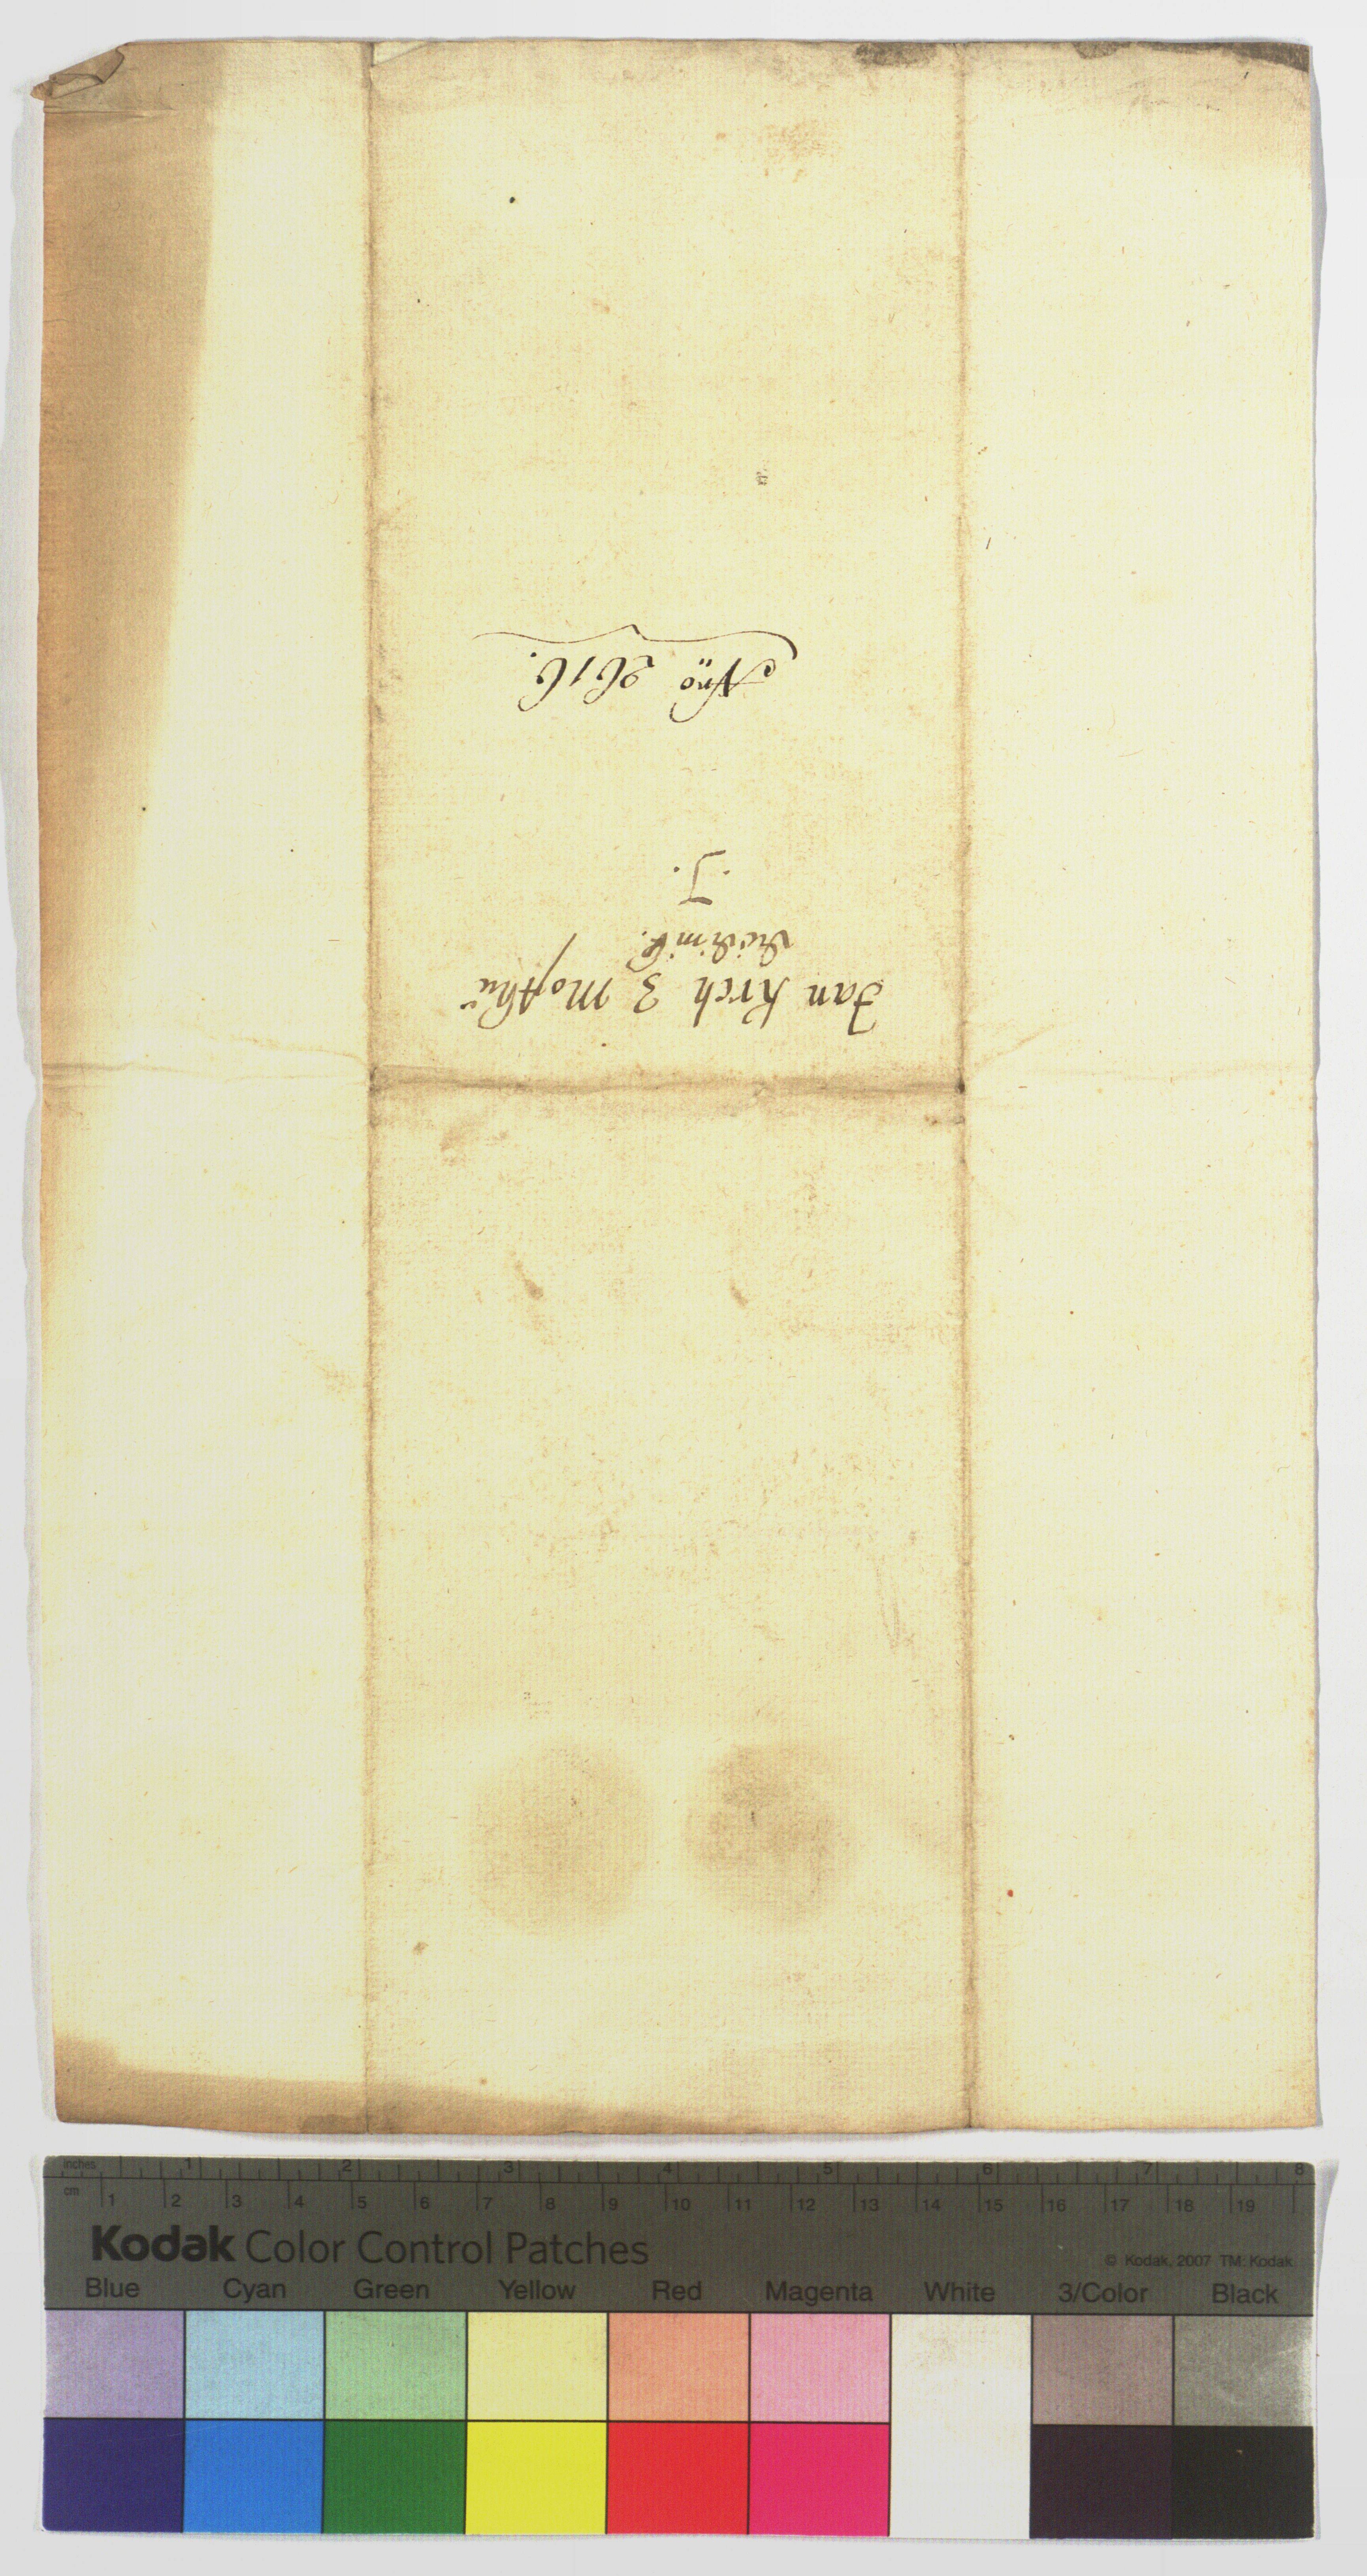 Jan Krch z Mosthu
Vidim[us].
.J.
Nro 2616.
inches 1 2 3 4 5 6 7 8
cm 1 2 3 4 5 6 7 8 9 10 11 12 13 14 15 16 17 18 19
Kodak Color Control Patches
© Kodak, 2007 TM: Kodak
Blue Cyan Green Yellow Red Magenta White 3/Color Black